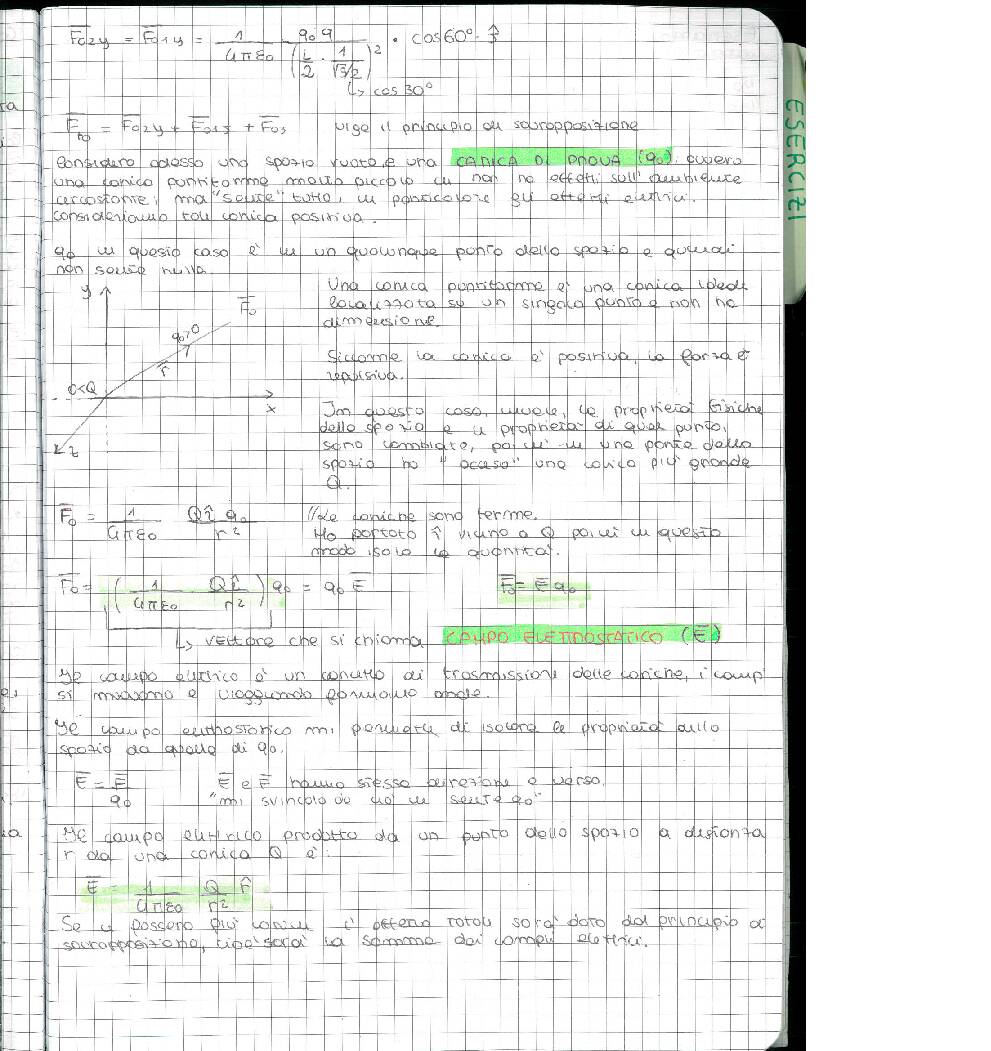 F̅02y = F̅01y = 1/4πε0 q0q/(L/2 · 1/√3/2)² · cos60° ĵ
↳ cos30°
F̅T0 = F̅02y + F̅01y + F̅03 vige il principio di sovrapposizione
Considero adesso uno spazio vuoto e una CARICA DI PROVA (q0), ovvero
una carica puntiforme molto piccola che non ha effetti sull'ambiente
circostante, ma "sente" tutto, in particolare gli effetti elettrici.
consideriamo tale carica positiva.
q0 in questo caso è in un qualunque punto dello spazio e quindi
non sente nulla.
y
F̅0
q0>0
r̅
0<Q
x
z
Una carica puntiforme è una carica ideale
localizzata su un singolo punto e non ha
dimensione.
Siccome la carica è positiva, la forza è
repulsiva.
In questo caso, invece, le proprietà fisiche
dello spazio e le proprietà di quel punto,
sono cambiate, poiché in una parte dello
spazio ho "acceso" una carica più grande
Q.
F̅0 = 1/4πε0 Qr̂ q0/r² //Le cariche sono ferme.
Ho portato r̂ vicino a Q poiché in questo
modo isolo le quantità.
F̅0 = (1/4πε0 Qr̂/r²) q0 = q0 E̅ F̅0 = E̅ q0
↳ vettore che si chiama CAMPO ELETTROSTATICO (E̅)
Il campo elettrico è un concetto di trasmissioni delle cariche, i campi
si muovono e viaggiando formano onde.
Il campo elettrostatico mi permette di isolare le proprietà dello
spazio da quelle di q0.
E̅ = F̅/q0 E̅ e F̅ hanno stessa direzione e verso.
"mi svincolo da ciò che sente q0"
Il campo elettrico prodotto da un punto dello spazio a distanza
r da una carica Q è:
E̅ = 1/4πε0 Q/r² r̂
Se ci fossero più cariche l'effetto totale sarà dato dal principio di
sovrapposizione, cioè sarà la somma dei campi elettrici.
ESERCIZI